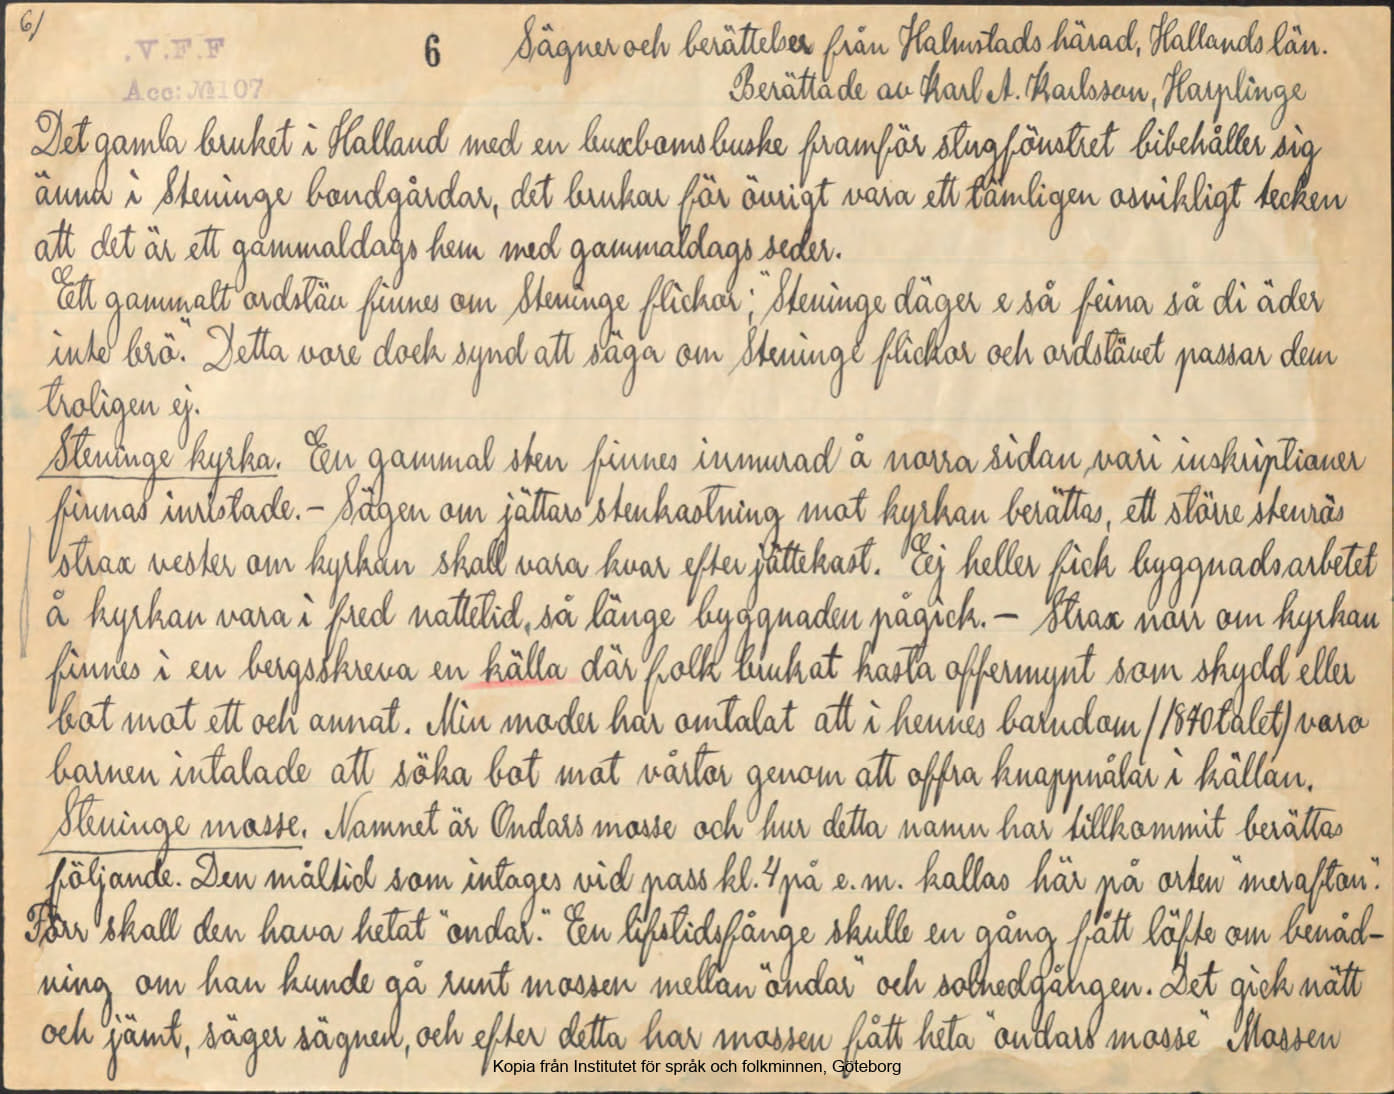 6/
.V.F.F
Acc: № 107
6
Sägner och berättelser från Halmstads härad, Hallands län.
Berättade av Karl A. Karlsson, Harplinge
Det gamla bruket i Halland med en buxbomsbuske framför stugfönstret bibehåller sig
ännu i Steninge bondgårdar, det brukar för övrigt vara ett tämligen osvikligt tecken
att det är ett gammaldags hem med gammaldags seder.
Ett gammalt ordstäv finnes om Steninge flickor; "Steninge däger e så feina så di äder
inte brö". Detta vore dock synd att säga om Steninge flickor och ordstävet passar dem
troligen ej.
Steninge kyrka. En gammal sten finnes inmurad å norra sidan, vari inskriptioner
finnas inristade. – Sägen om jättars stenkastning mot kyrkan berättas, ett större stenrös
strax vester om kyrkan skall vara kvar efter jättekast. Ej heller fick byggnadsarbetet
å kyrkan vara i fred nattetid, så länge byggnaden pågick. – Strax norr om kyrkan
finnes i en bergsskreva en källa där folk brukat kasta offermynt som skydd eller
bot mot ett och annat. Min moder har omtalat att i hennes barndom (1840talet) voro
barnen intalade att söka bot mot vårtor genom att offra knappnålar i källan.
Steninge mosse. Namnet är Ondars mosse och hur detta namn har tillkommit berättas
följande. Den måltid som intages vid pass kl. 4 på e.m. kallas här på orten "merafton".
Förr skall den hava hetat "ondar". En lifstidsfånge skulle en gång fått löfte om benåd-
ning om han kunde gå runt mossen mellan "ondar" och solnedgången. Det gick nätt
och jämt, säger sägnen, och efter detta har mossen fått heta "ondars mosse" Mossen
Kopia från Institutet för språk och folkminnen, Göteborg